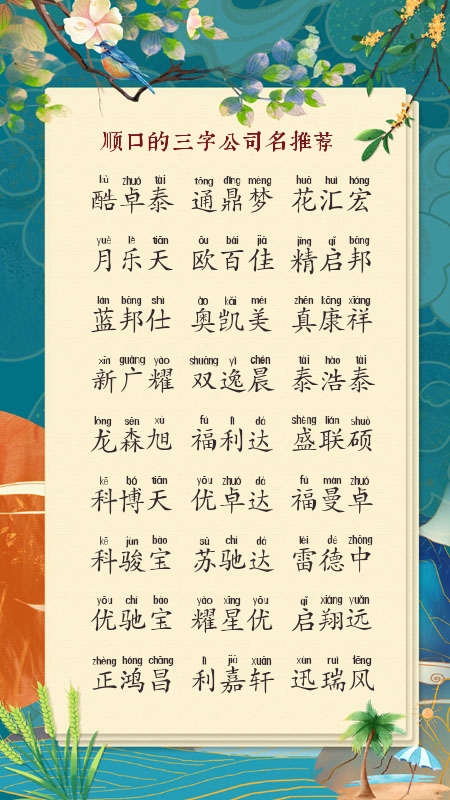 顺口的三字公司名推荐
kù zhuó tài tōng dǐng mèng huā huì hóng
酷卓泰 通鼎梦 花汇宏
yuè lè tiān ōu bǎi jiā jīng qǐ bāng
月乐天 欧百佳 精启邦
lán bāng shì ào kǎi měi zhēn kāng xiáng
蓝邦仕 奥凯美 真康祥
xīn guǎng yào shuāng yì chén tài hào tài
新广耀 双逸晨 泰浩泰
lóng sēn xù fú lì dá shèng lián shuò
龙森旭 福利达 盛联硕
kē bó tiān yōu zhuó dá fú màn zhuó
科博天 优卓达 福曼卓
kē jùn bǎo sū chí dá léi dé zhōng
科骏宝 苏驰达 雷德中
yōu chí bǎo yào xīng yōu qǐ xiáng yuǎn
优驰宝 耀星优 启翔远
zhèng hóng chāng lì jiā xuān xùn ruì fēng
正鸿昌 利嘉轩 迅瑞风